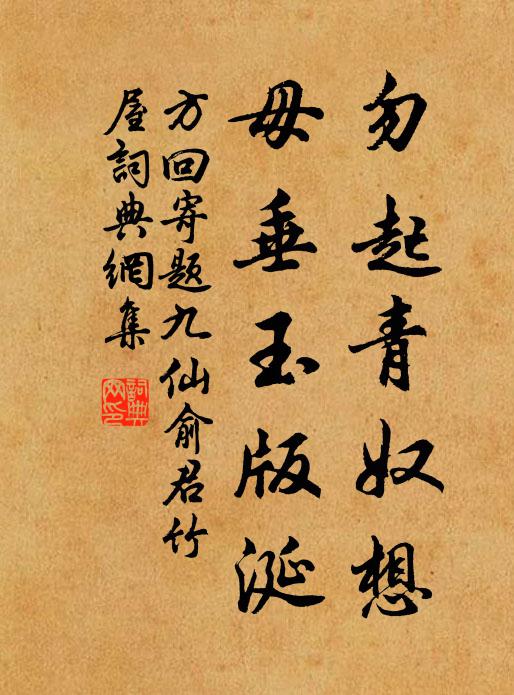 勿起青奴想
毋垂玉版涎
方回寄題九仙俞君竹
屋詞典網集
詞典網印